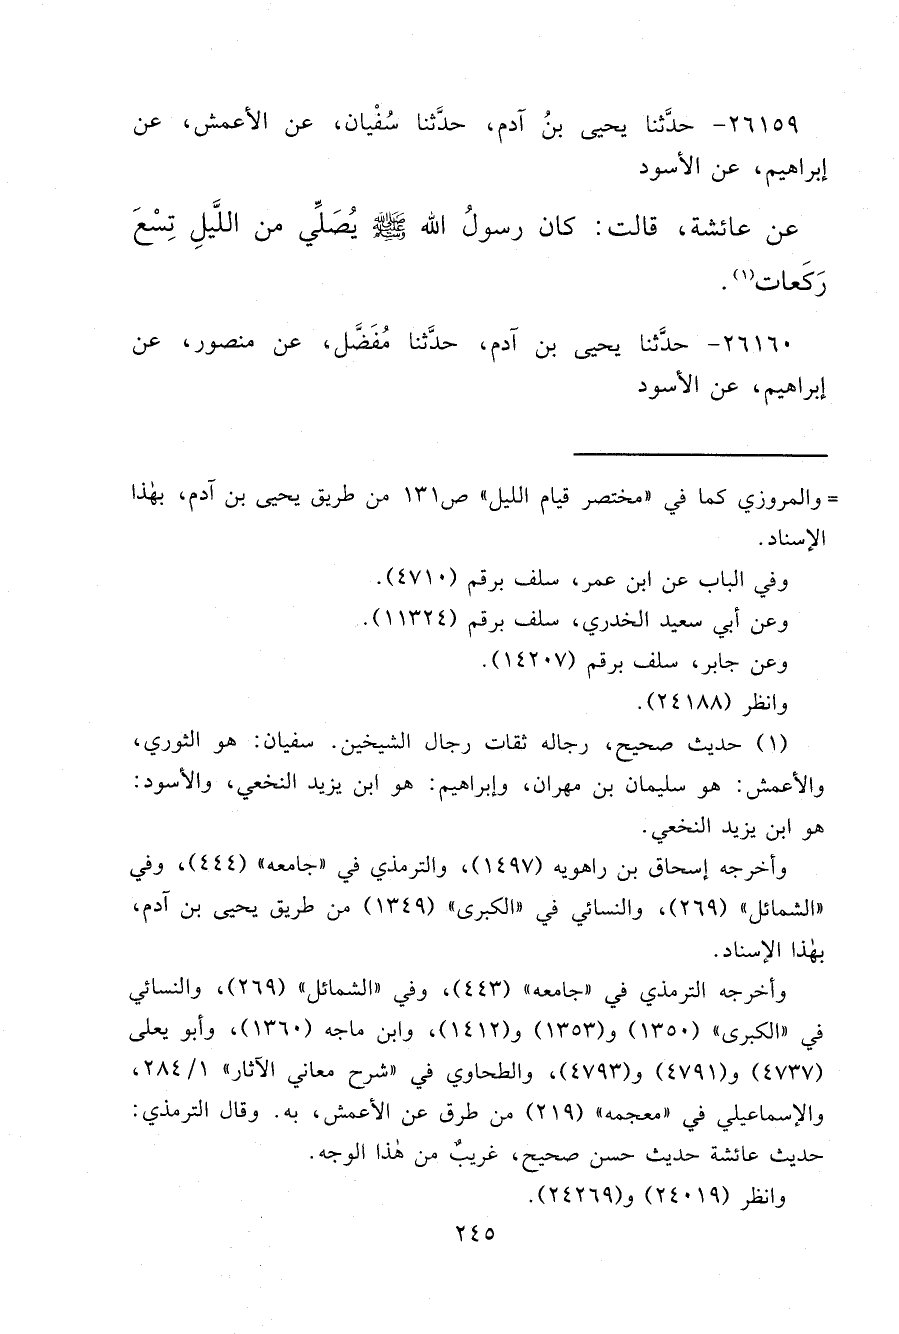 ٢٦١٥٩- حدَّثنا يحيى بنُ آدم، حدَّثنا سُفْيان، عن الأعمش، عن
إبراهيم، عن الأسود
عن عائشة، قالت: كان رسولُ الله ﷺ يُصَلِّي من اللَّيلِ تِسْعَ
رَكَعات(١).
٢٦١٦٠- حدَّثنا يحيى بن آدم، حدَّثنا مُفَضَّل، عن منصور، عن
إبراهيم، عن الأسود
= والمروزي كما في «مختصر قيام الليل» ص١٣١ من طريق يحيى بن آدم، بهٰذا
الإسناد.
وفي الباب عن ابن عمر، سلف برقم (٤٧١٠).
وعن أبي سعيد الخدري، سلف برقم (١١٣٢٤).
وعن جابر، سلف برقم (١٤٢٠٧).
وانظر (٢٤١٨٨).
(١) حديث صحيح، رجاله ثقات رجال الشيخين. سفيان: هو الثوري،
والأعمش: هو سليمان بن مهران، وإبراهيم: هو ابن يزيد النخعي، والأسود:
هو ابن يزيد النخعي.
وأخرجه إسحاق بن راهويه (١٤٩٧)، والترمذي في «جامعه» (٤٤٤)، وفي
«الشمائل» (٢٦٩)، والنسائي في «الكبرى» (١٣٤٩) من طريق يحيى بن آدم،
بهٰذا الإسناد.
وأخرجه الترمذي في «جامعه» (٤٤٣)، وفي «الشمائل» (٢٦٩)، والنسائي
في «الكبرى» (١٣٥٠) و(١٣٥٣) و(١٤١٢)، وابن ماجه (١٣٦٠)، وأبو يعلى
(٤٧٣٧) و(٤٧٩١) و(٤٧٩٣)، والطحاوي في «شرح معاني الآثار» ١/ ٢٨٤،
والإسماعيلي في «معجمه» (٢١٩) من طرق عن الأعمش، به. وقال الترمذي:
حديث عائشة حديث حسن صحيح، غريبٌ من هٰذا الوجه.
وانظر (٢٤٠١٩) و(٢٤٢٦٩).
٢٤٥